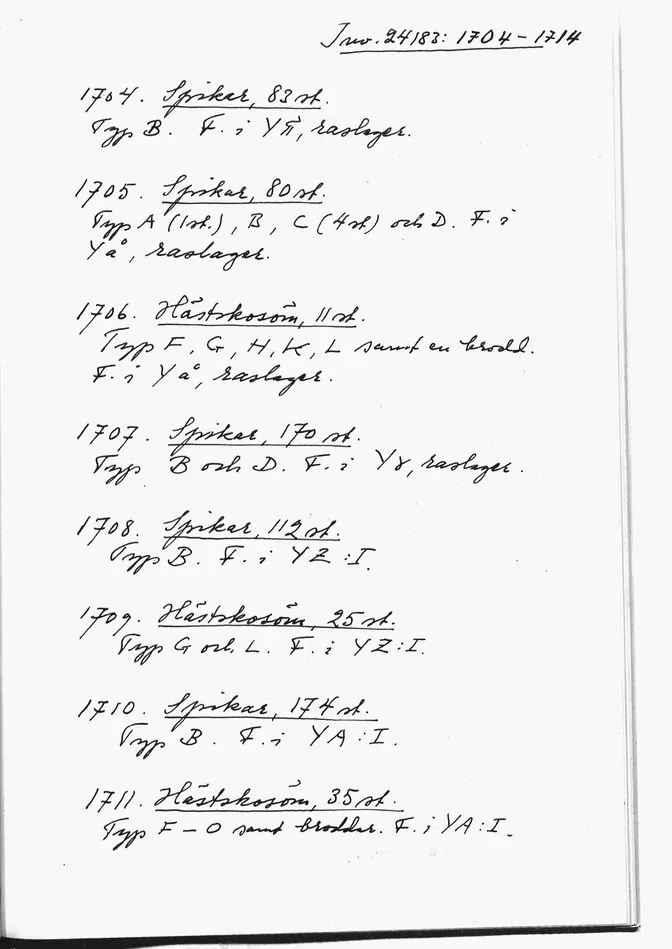 Inv. 24183: 1704-1714
1704. Spikar, 83 st.
Typ B. F. i Yπ, raslager.
1705. Spikar, 80 st.
Typ A (1st.), B, C (4st) och D. F. i
Yå, raslager.
1706. Hästskosöm, 11 st.
Typ F, G, H, K, L samt en brodd.
F. i Yå, raslager.
1707. Spikar, 170 st.
Typ B och D. F. i Yγ, raslager.
1708. Spikar, 112 st.
Typ B. F. i YZ:I.
1709. Hästskosöm, 25 st.
Typ G och L. F. i YZ:I.
1710. Spikar, 174 st.
Typ B. F. i YA:I.
1711. Hästskosöm, 35 st.
Typ F-O samt broddar. F. i YA:I.